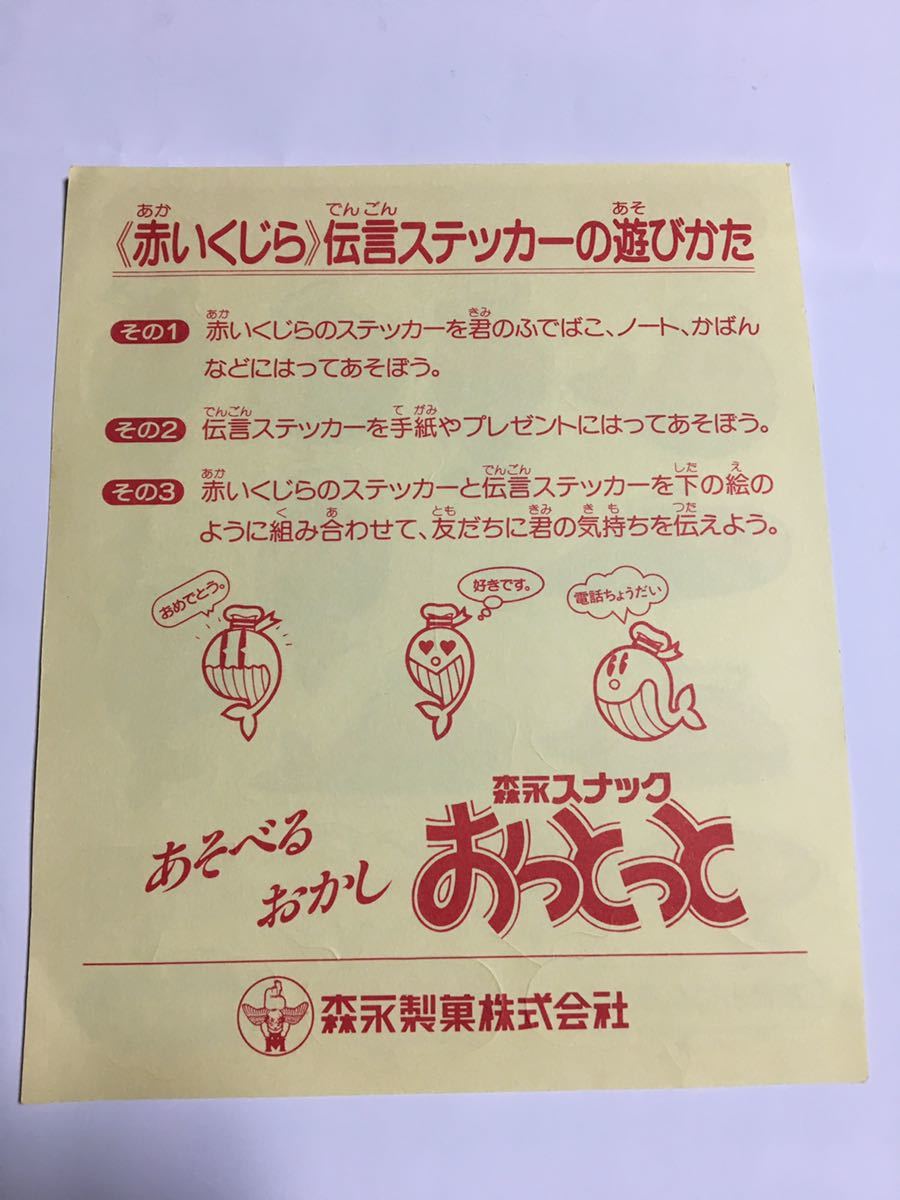 《赤いくじら》伝言ステッカーの遊びかた
その1 赤いくじらのステッカーを君のふでばこ、ノート、かばん
などにはってあそぼう。
その2 伝言ステッカーを手紙やプレゼントにはってあそぼう。
その3 赤いくじらのステッカーと伝言ステッカーを下の絵の
ように組み合わせて、友だちに君の気持ちを伝えよう。
おめでとう。
好きです。
電話ちょうだい
森永スナック
あそべる
おかし
おっとっと
森永製菓株式会社